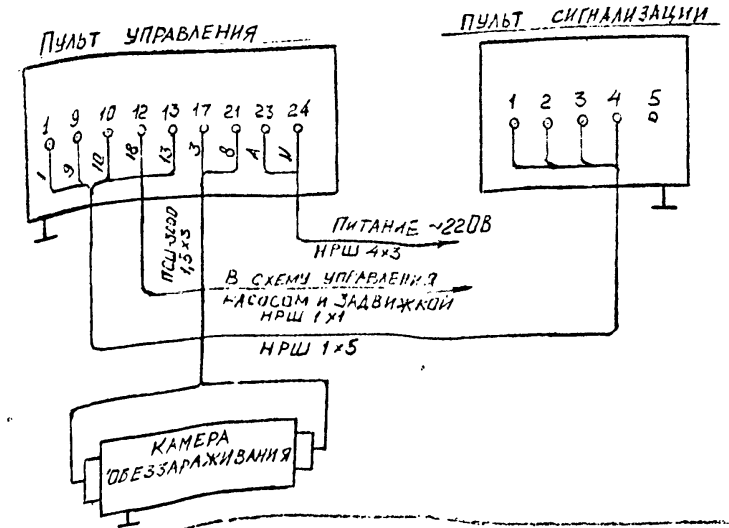 ПУЛЬТ УПРАВЛЕНИЯ
ПУЛЬТ СИГНАЛИЗАЦИИ
1 9 10 12 13 17 21 23 24
1 2 3 4 5
1 9 10 18 13 3 8 А N
ПИТАНИЕ ~220В
НРШ 4×3
1,5×3
В СХЕМУ УПРАВЛЕНИЯ
НАСОСОМ И ЗАДВИЖКОЙ
НРШ 1×1
НРШ 1×5
КАМЕРА
ОБЕЗЗАРАЖИВАНИЯ